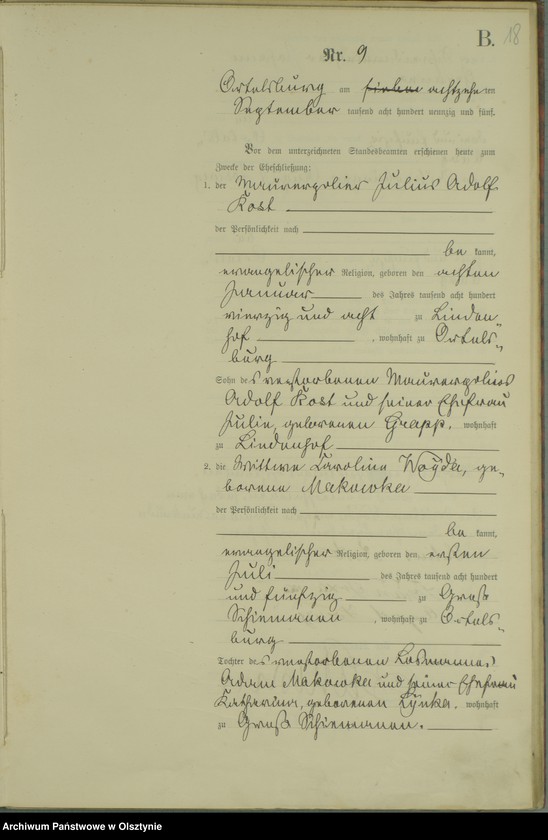 B. 18
Nr. 9
Ortelsburg am sieben achtzehnten
September tausend acht hundert neunzig und fünf.
Vor dem unterzeichneten Standesbeamten erschienen heute zum
Zwecke der Eheschließung:
1. der Maurerpolier Julius Adolf
Kost
der Persönlichkeit nach
be kannt,
evangelischer Religion, geboren den achten
Januar des Jahres tausend acht hundert
vierzig und acht zu Linden
hof, wohnhaft zu Ortels-
burg
Sohn des verstorbenen Maurerpoliers
Adolf Kost und seiner Ehefrau
Julie, geborenen Grapp. wohnhaft
zu Lindenhof
2. die Wittwe Caroline Woyda, ge-
borene Makowka
der Persönlichkeit nach
be kannt,
evangelischer Religion, geboren den ersten
Juli des Jahres tausend acht hundert
und fünfzig zu Groß
Schiemanen, wohnhaft zu Ortels-
burg
Tochter des verstorbenen Losmannes
Adam Makowka und seiner Ehefrau
Katharina, geborenen Lynka. wohnhaft
zu Groß Schiemanen.
Archiwum Państwowe w Olsztynie